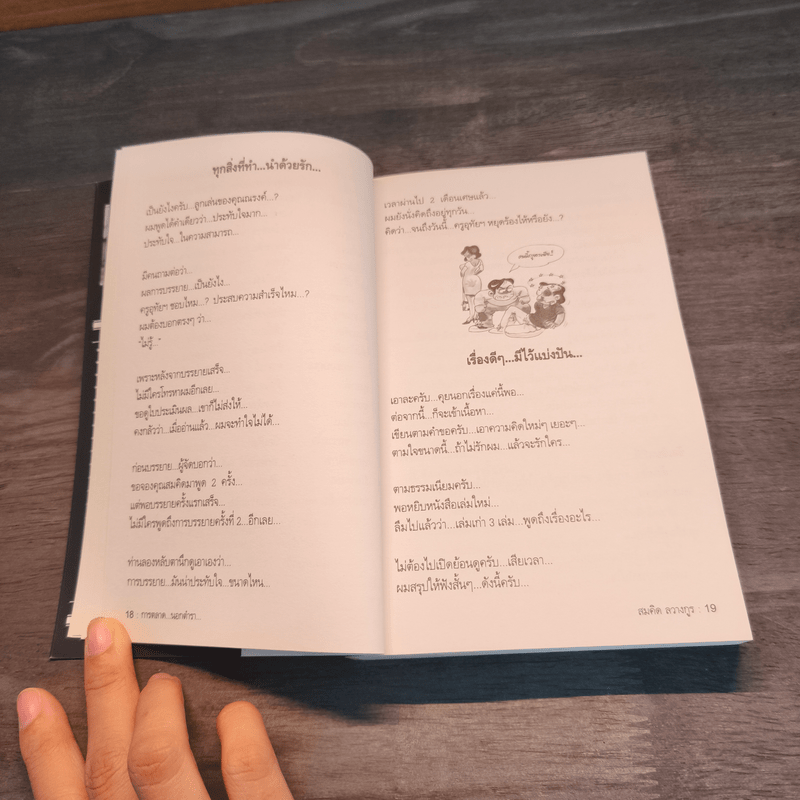 ทุกสิ่งที่ทำ...นำด้วยรัก...
เป็นยังไงครับ...ลูกเล่นของคุณณรงค์...?
ผมพูดได้คำเดียวว่า...ประทับใจมาก...
ประทับใจ...ในความสามารถ...
มีคนถามต่อว่า...
ผลการบรรยาย...เป็นยังไง...
ครูอุทัยฯ ชอบไหม...? ประสบความสำเร็จไหม...?
ผมต้องบอกตรงๆ ว่า...
"ไม่รู้..."
เพราะหลังจากบรรยายเสร็จ...
ไม่มีใครโทรหาผมอีกเลย...
ขอดูใบประเมินผล...เขาก็ไม่ส่งให้...
คงกลัวว่า...เมื่ออ่านแล้ว...ผมจะทำใจไม่ได้...
ก่อนบรรยาย...ผู้จัดบอกว่า...
ขอจองคุณสมคิดมาพูด 2 ครั้ง...
แต่พอบรรยายครั้งแรกเสร็จ...
ไม่มีใครพูดถึงการบรรยายครั้งที่ 2...อีกเลย...
ท่านลองหลับตานึกดูเอาเองว่า...
การบรรยาย...มันน่าประทับใจ...ขนาดไหน...
18 : การตลาด...นอกตำรา...
เวลาผ่านไป 2 เดือนเศษแล้ว...
ผมยังนั่งคิดถึงอยู่ทุกวัน...
คิดว่า...จนถึงวันนี้...ครูอุทัยฯ หยุดร้องไห้หรือยัง...?
เรื่องดีๆ...มีไว้แบ่งปัน...
เอาละครับ...คุยนอกเรื่องแค่นี้พอ...
ต่อจากนี้...ก็จะเข้าเนื้อหา...
เขียนตามคำขอครับ...เอาความคิดใหม่ๆ เยอะๆ...
ตามใจขนาดนี้...ถ้าไม่รักผม...แล้วจะรักใคร...
ตามธรรมเนียมครับ...
พอหยิบหนังสือเล่มใหม่...
ลืมไปแล้วว่า...เล่มเก่า 3 เล่ม...พูดถึงเรื่องอะไร...
ไม่ต้องไปเปิดย้อนดูครับ...เสียเวลา...
ผมสรุปให้ฟังสั้นๆ...ดังนี้ครับ...
สมคิด ลวางกูร : 19